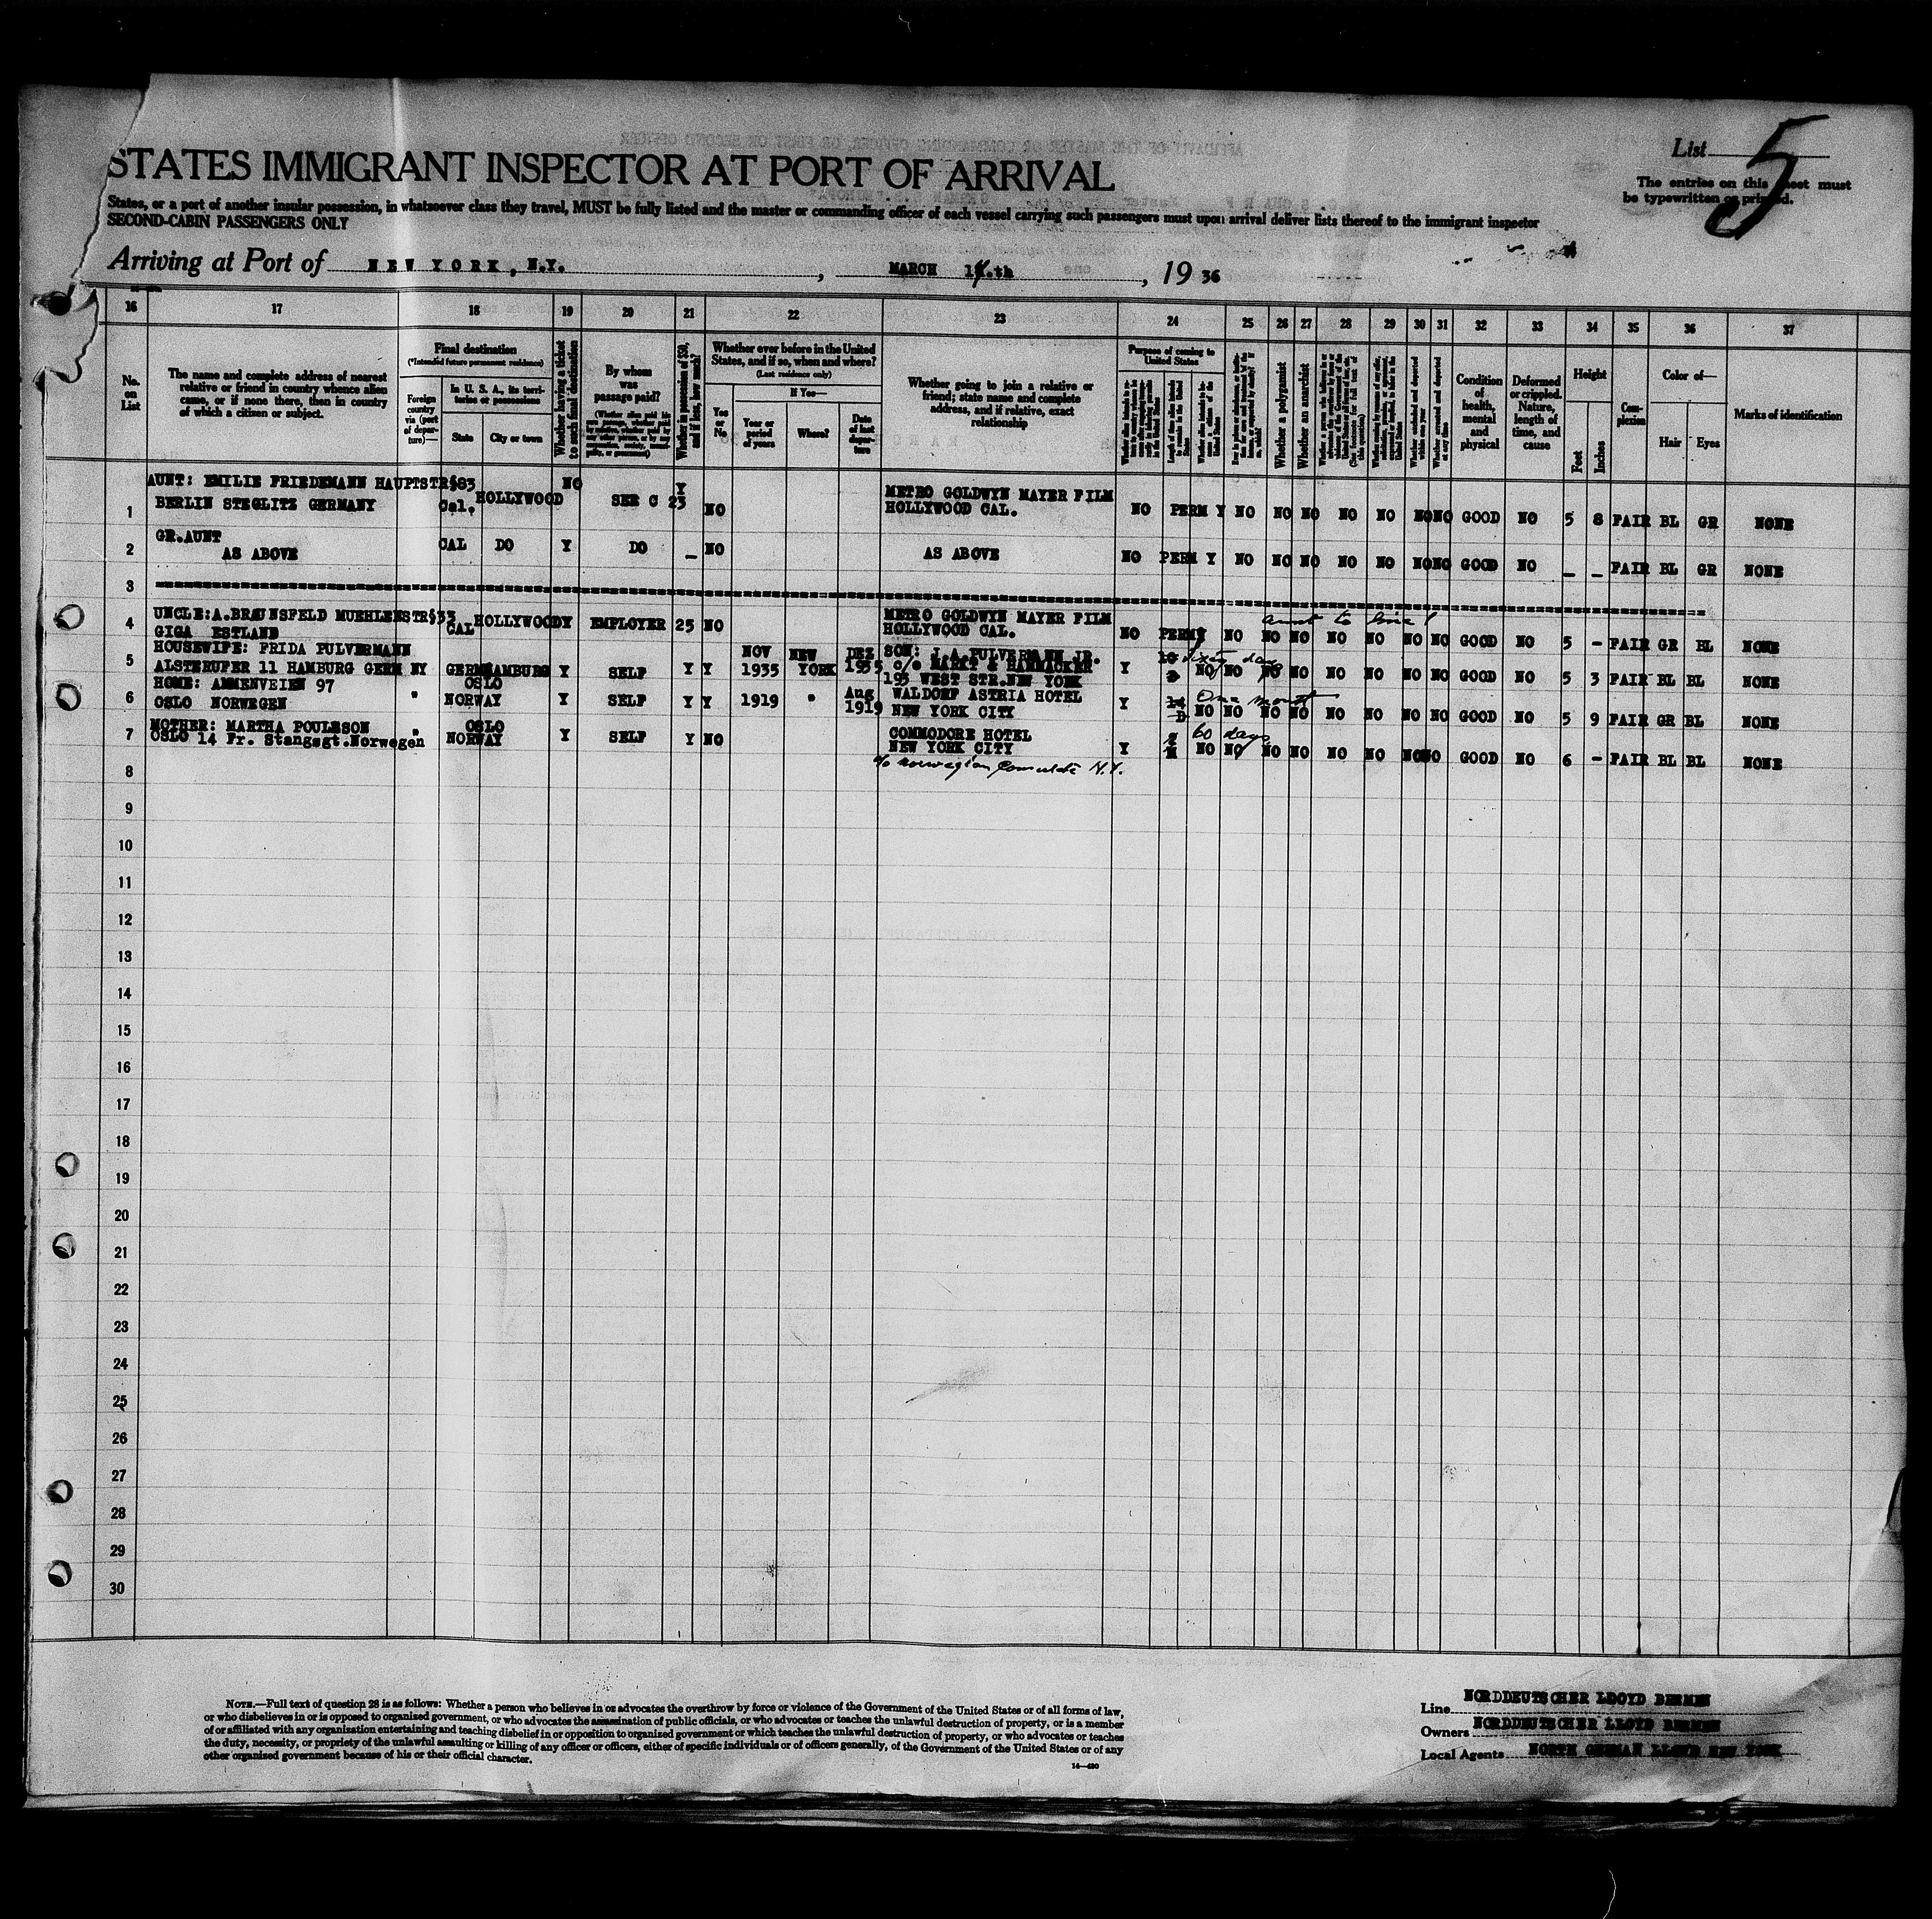 List 5
The entries on this sheet must
be typewritten or printed.
STATES IMMIGRANT INSPECTOR AT PORT OF ARRIVAL
States, or a port of another insular possession, in whatsoever class they travel, MUST be fully listed and the master or commanding officer of each vessel carrying such passengers must upon arrival deliver lists thereof to the immigrant inspector
SECOND-CABIN PASSENGERS ONLY
Arriving at Port of NEW YORK, N.Y. , MARCH 14.th , 19 36
16 17 18 19 20 21 22 23 24 25 26 27 28 29 30 31 32 33 34 35 36 37
No. on List
The name and complete address of nearest
relative or friend in country whence alien
came, or if none there, then in country
of which a citizen or subject.
Final destination
(*Intended future permanent residence)
Foreign country via (port of departure)—
In U. S. A., its territories or possessions
State City or town
Whether having a ticket to such final destination
By whom was passage paid?
Whether in possession of $50, and if less, how much?
Whether ever before in the United
States, and if so, when and where?
(Last residence only)
Yes or No
If Yes—
Year or period of years
Where?
Date of last departure
Whether going to join a relative or
friend; state name and complete
address, and if relative, exact
relationship
Purpose of coming to United States
Whether a polygamist
Whether an anarchist
Condition of health, mental and physical
Deformed or crippled. Nature, length of time, and cause
Height
Feet Inches
Complexion
Color of—
Hair Eyes
Marks of identification
AUNT: EMILIE FRIEDEMANN HAUPTSTR§83 NO Y
1 BERLIN STEGLITZ GERMANY Cal. HOLLYWOOD SEE C 23 NO METRO GOLDWYN MAYER FILM
HOLLYWOOD CAL. NO PERM Y NO NO NO NO NO NO NO GOOD NO 5 8 FAIR BL GR NONE
GR.AUNT
2 AS ABOVE CAL DO Y DO – NO AS ABOVE NO PERM Y NO NO NO NO NO NO NO GOOD NO – – FAIR BL GR NONE
3
UNCLE:A.BRAUNSFELD MUEHLENSTR§33 METRO GOLDWYN MAYER FILM aunt to
4 GIGA ESTLAND CAL HOLLYWOOD Y EMPLOYER 25 NO HOLLYWOOD CAL. NO PERM Y NO NO NO NO NO NO NO GOOD NO 5 – FAIR GR BL NONE
HOUSEWIFE: FRIDA PULVERMANN NOV NEW DEZ SON: J.A.PULVERMANN JR. sixty days
5 ALSTERUFER 11 HAMBURG GERM NY GERM HAMBURG Y SELF Y Y 1935 YORK 1935 c/o MARKT & HAMMACKER
193 WEST STR.NEW YORK Y NO NO NO NO NO NO NO NO GOOD NO 5 3 FAIR BL BL NONE
HOME: AMMENVEIEN 97 OSLO Aug WALDORF ASTRIA HOTEL One month
6 OSLO NORWEGEN " NORWAY Y SELF Y Y 1919 " 1919 NEW YORK CITY Y NO NO NO NO NO NO NO NO GOOD NO 5 9 FAIR GR BL NONE
MOTHER: MARTHA POULSSON OSLO COMMODORE HOTEL 60 days
7 OSLO 14 Fr. Stangsgt.Norwegen " NORWAY Y SELF Y NO NEW YORK CITY Y NO NO NO NO NO NO NO NO GOOD NO 6 – FAIR BL BL NONE
8 c/o Norwegian Consulate N.Y.
9
10
11
12
13
14
15
16
17
18
19
20
21
22
23
24
25
26
27
28
29
30
NOTE.—Full text of question 28 is as follows: Whether a person who believes in or advocates the overthrow by force or violence of the Government of the United States or of all forms of law,
or who disbelieves in or is opposed to organized government, or who advocates the assassination of public officials, or who advocates or teaches the unlawful destruction of property, or is a member
of or affiliated with any organization entertaining and teaching disbelief in or opposition to organized government or which teaches the unlawful destruction of property, or who advocates or teaches
the duty, necessity, or propriety of the unlawful assaulting or killing of any officer or officers, either of specific individuals or of officers generally, of the Government of the United States or of any
other organized government because of his or their official character.
14—480
Line NORDDEUTSCHER LLOYD BREMEN
Owners NORDDEUTSCHER LLOYD BREMEN
Local Agents NORTH GERMAN LLOYD NEW YORK